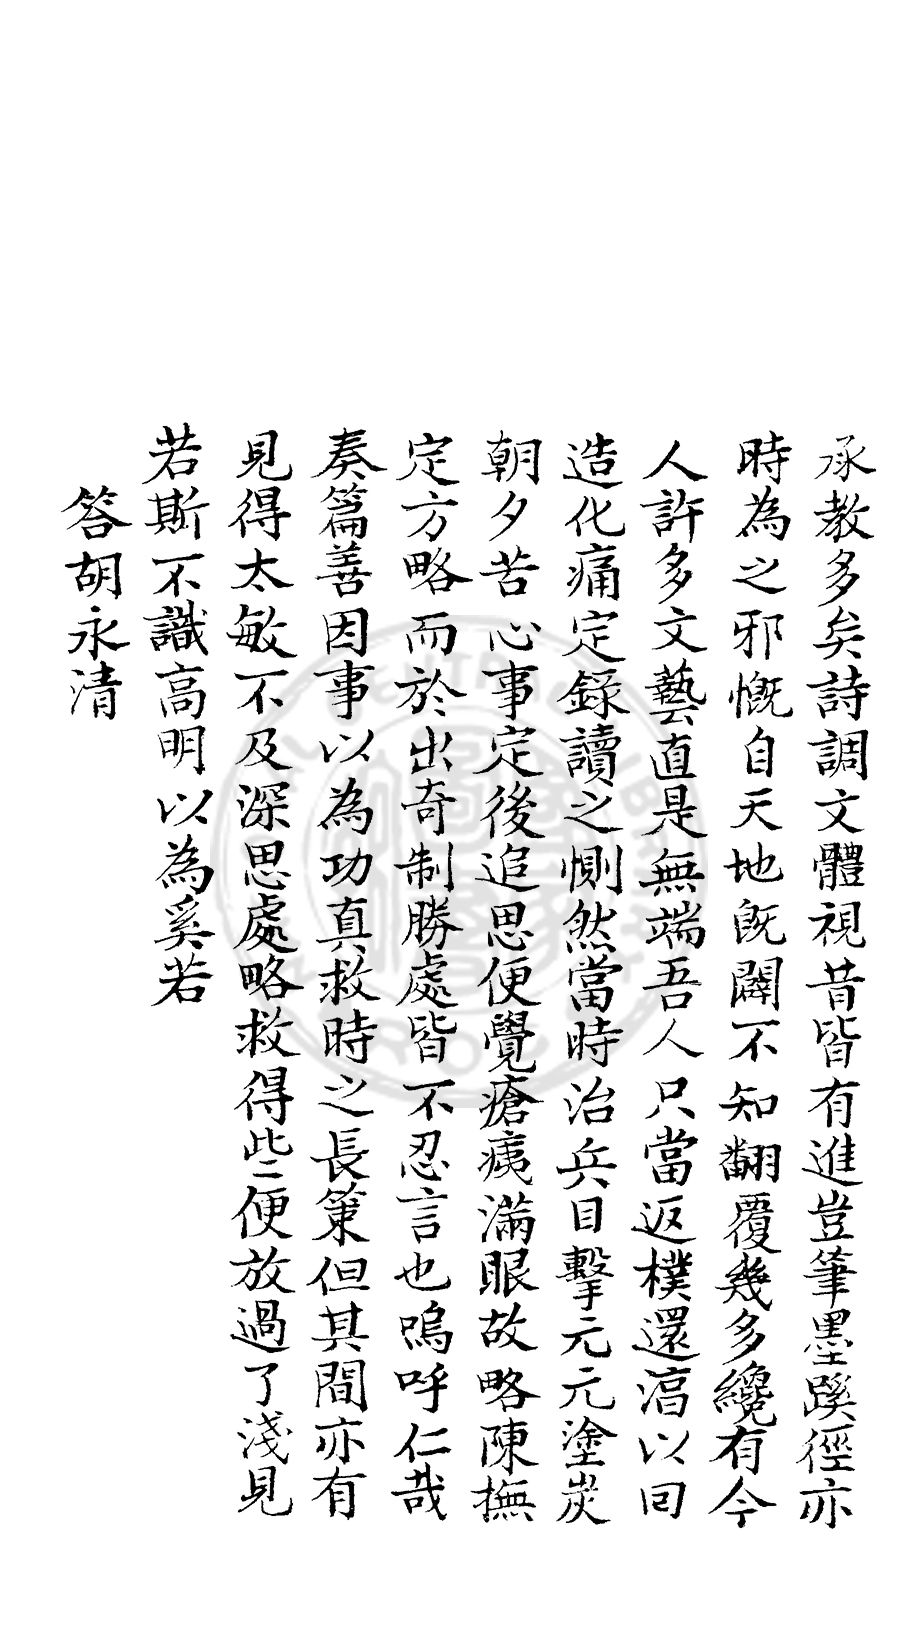 承教多矣詩調文體視昔皆有進豈筆墨蹊徑亦
時為之邪慨自天地既闢不知翻覆幾多纔有今
人許多文藝直是無端吾人只當返樸還淳以回
造化痛定錄讀之惻然當時治兵目擊元元塗炭
朝夕苦心事定後追思便覺瘡痍滿眼故略陳撫
定方略而於出奇制勝處皆不忍言也嗚呼仁哉
奏篇善因事以為功真救時之長策但其間亦有
見得太敏不及深思處略救得些便放過了淺見
若斯不識高明以為奚若
答胡永清